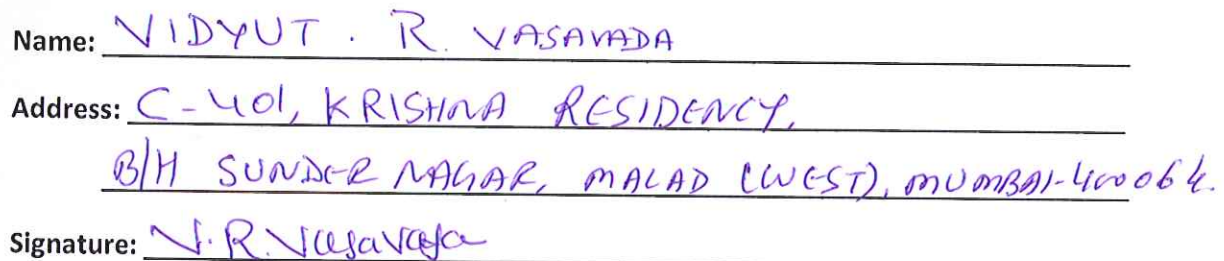 Name: VIDYUT . R. VASAVADA
Address: C-401, KRISHNA RESIDENCY,
B/H SUNDER NAGAR, MALAD (WEST), MUMBAI-400064.
Signature: V.R.Vasavada